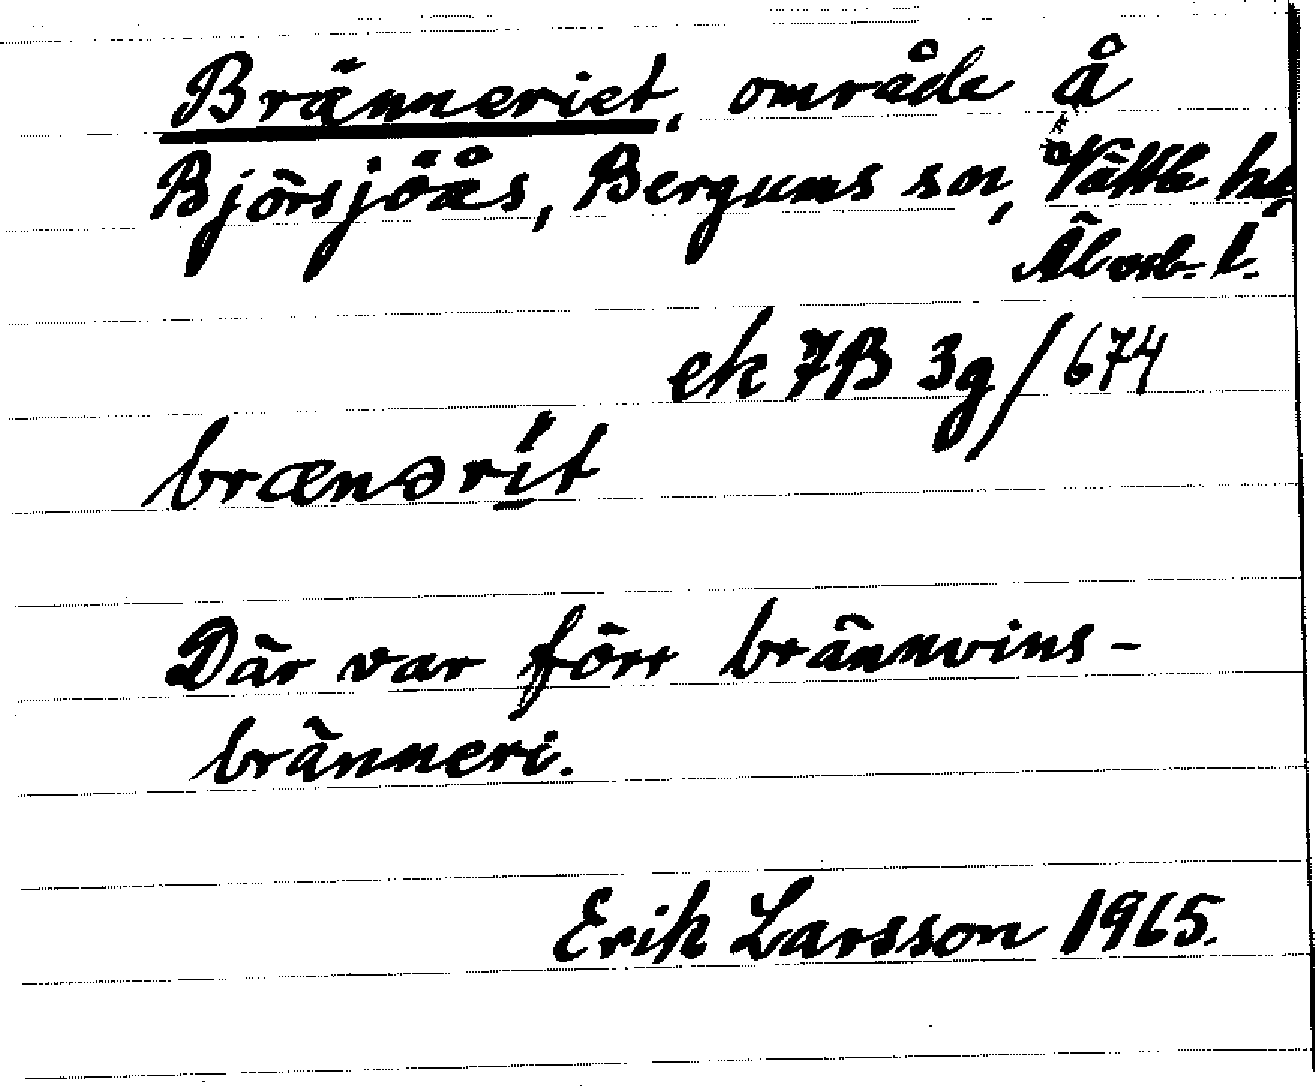 Bränneriet, område å
Björsjöås, Bergums sn, Vättle hd
Älvsb. l.
ek 7B 3g/674
brænərít
Där var förr brännvins-
bränneri.
Erik Larsson 1965.